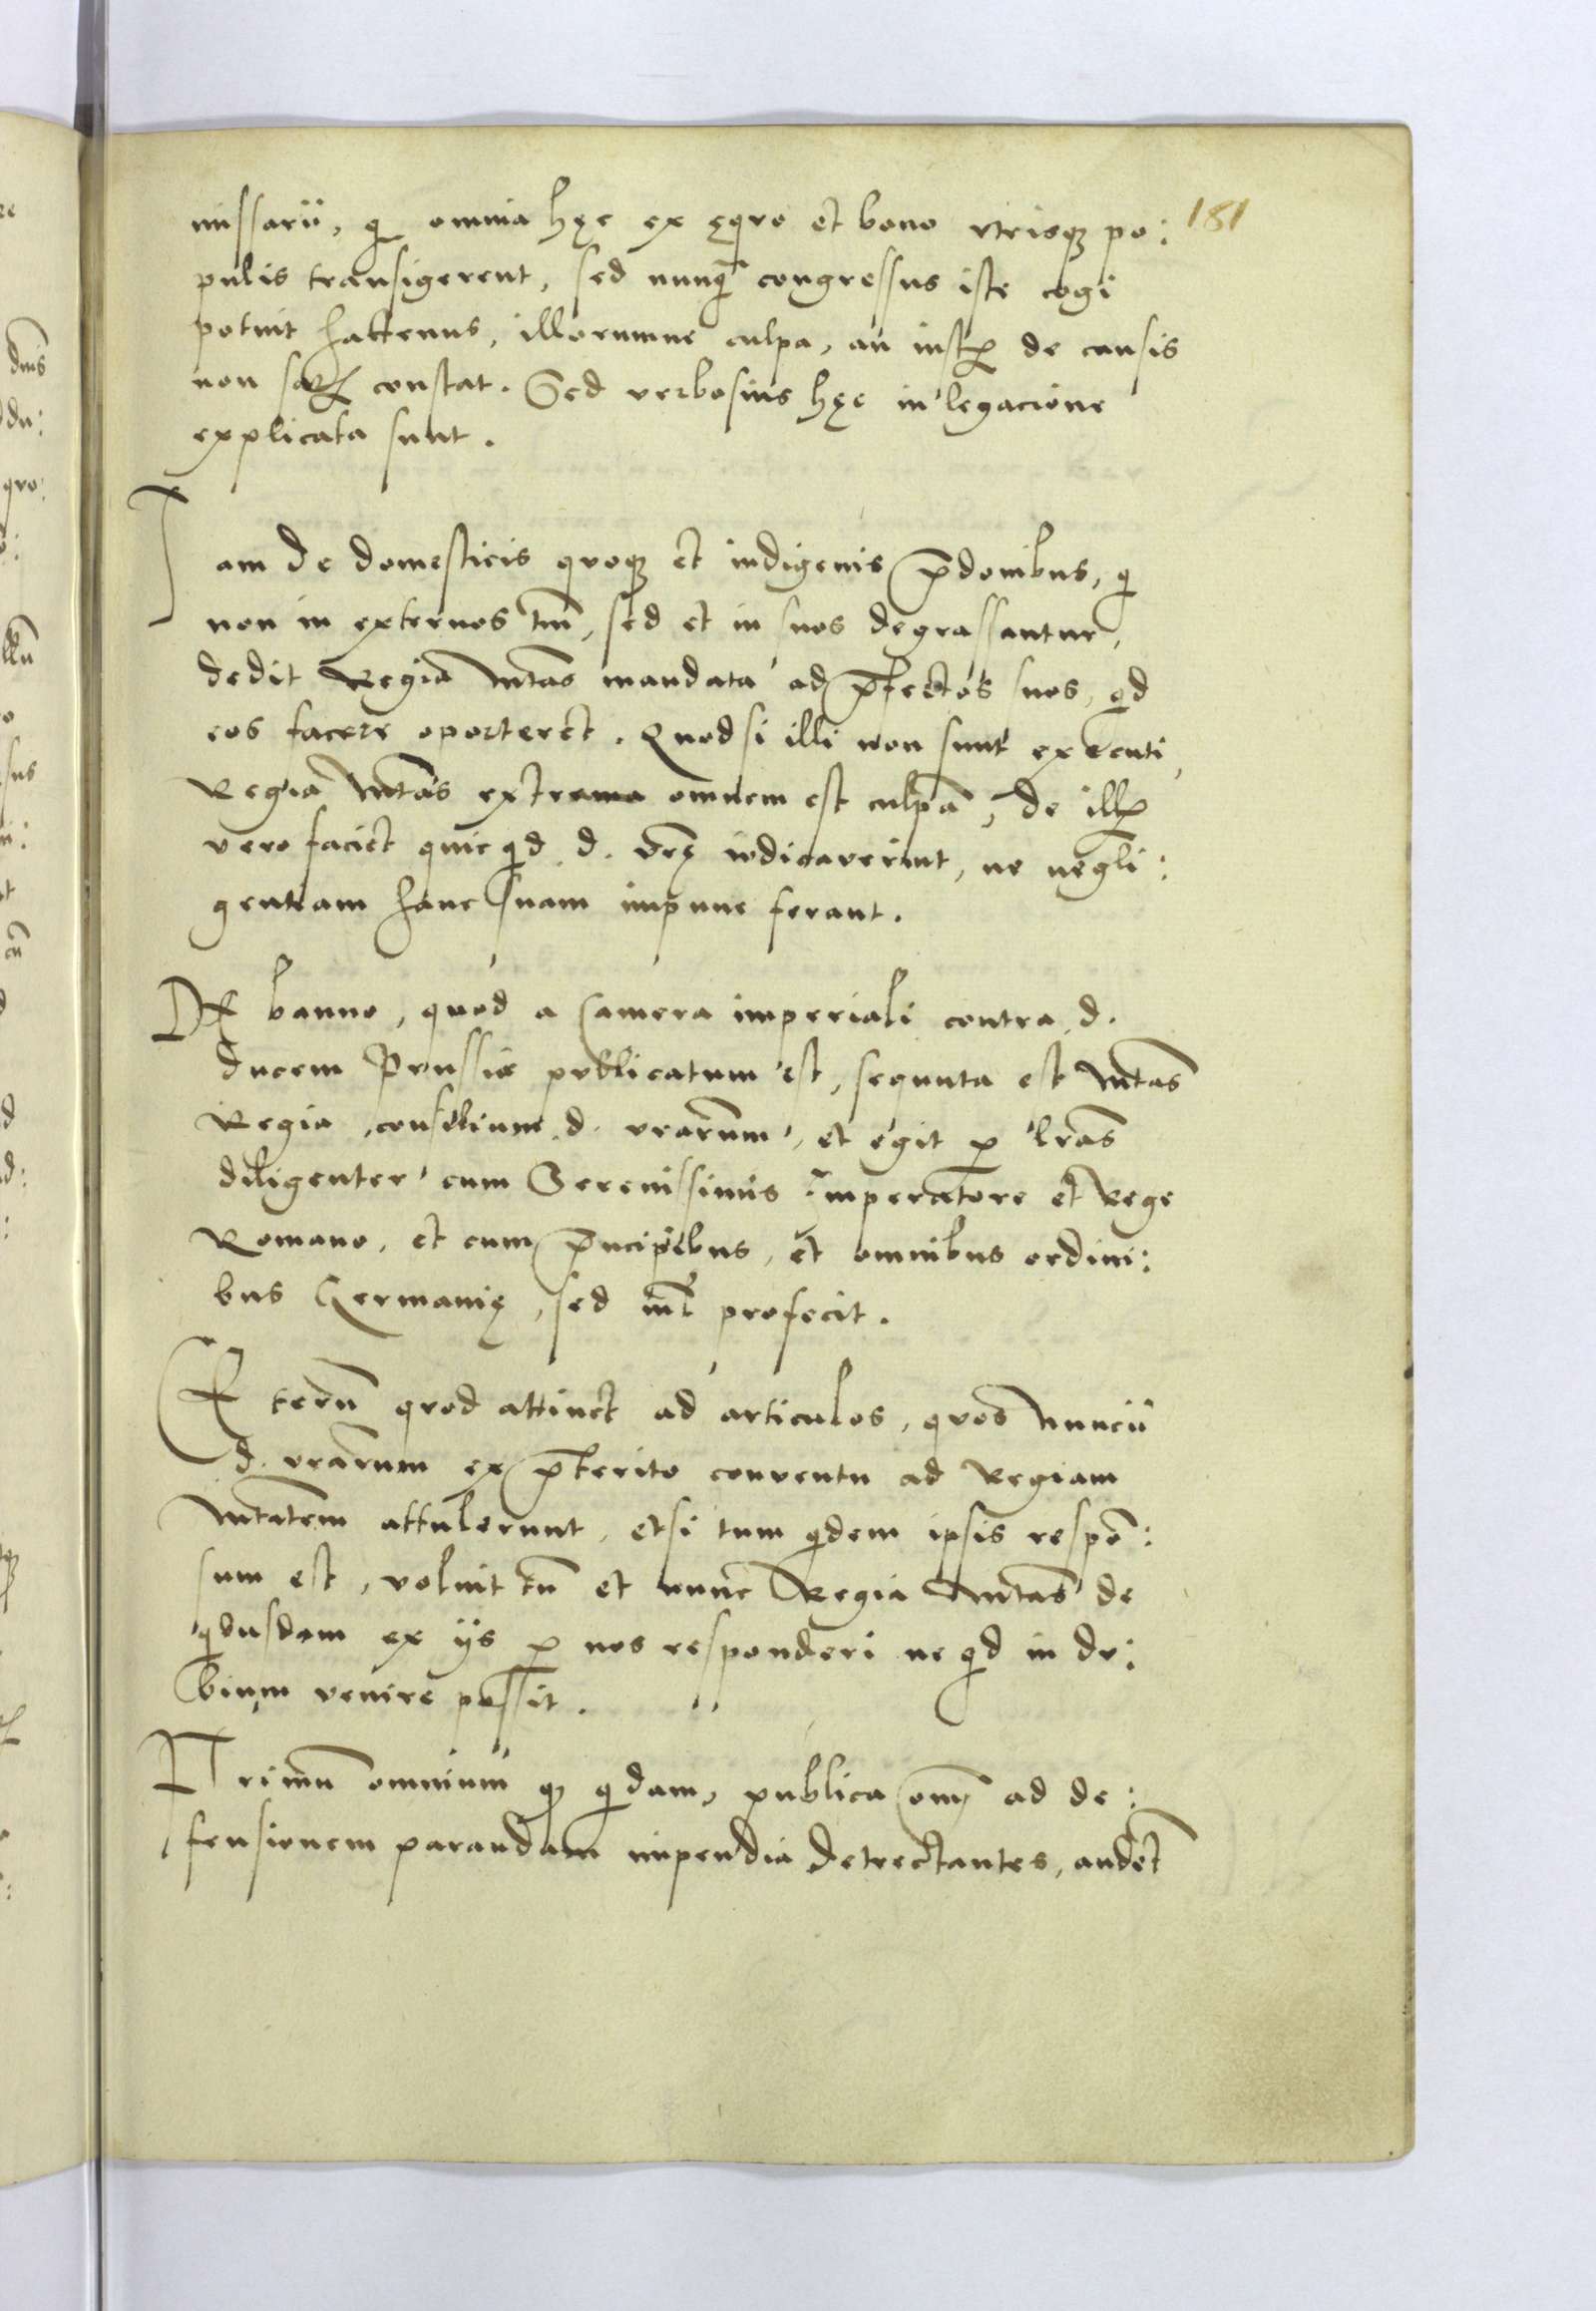 181
missarii, q omnia hęc ex ęqvo et bono vtrisqꝫ po:
pulis transigerent, sed nunq̃ congressus iste cogi
potuit hactenus, illorumne culpa, an iustꝭ de causis
non satꝭ constat. Sed verbosius hęc in legacione
explicata sunt.
Iam de domesticis qvoqꝫ et indigenis p̄donibus, q
non in externos tm̄, sed et in suos degrassantur,
dedit Regia Mtas mandata ad p̄fectos suos, qd
eos facere oporteret. Quodsi illi non sunt executi,
Regia Mtas extra omnem est culpā, de illꝭ
vero faciet quicqd d. vr̄ę iudicaverint, ne negli:
gentiam hanc suam impune ferant.
DE banno, quod a Camera imperiali contra d.
ducem Prussiæ pvblicatum est, sequuta est Mtas
Regia consilium d. vrārum, et egit ꝑ lrās
diligenter cum Serenissimis Imperatore et Rege
Romano, et cum p̄ncipibus, et omnibus ordini:
bus Germanię, sed nil profecit.
CEterū qvod attinet ad articulos, qvos Nuncii
d. vrārum ex p̄terito conventu ad Regiam
Mtatem attulerunt, etsi tum qdem ipsis respō:
sum est, voluit tn̄ et nunc Regia Mtas de
qbusdam ex ijs ꝑ nos responderi ne qd in dv:
bium venire possit.
Primū omnium qꝫ qdam, publica om̄ia ad de:
fensionem parandam impendia detrectantes, audet